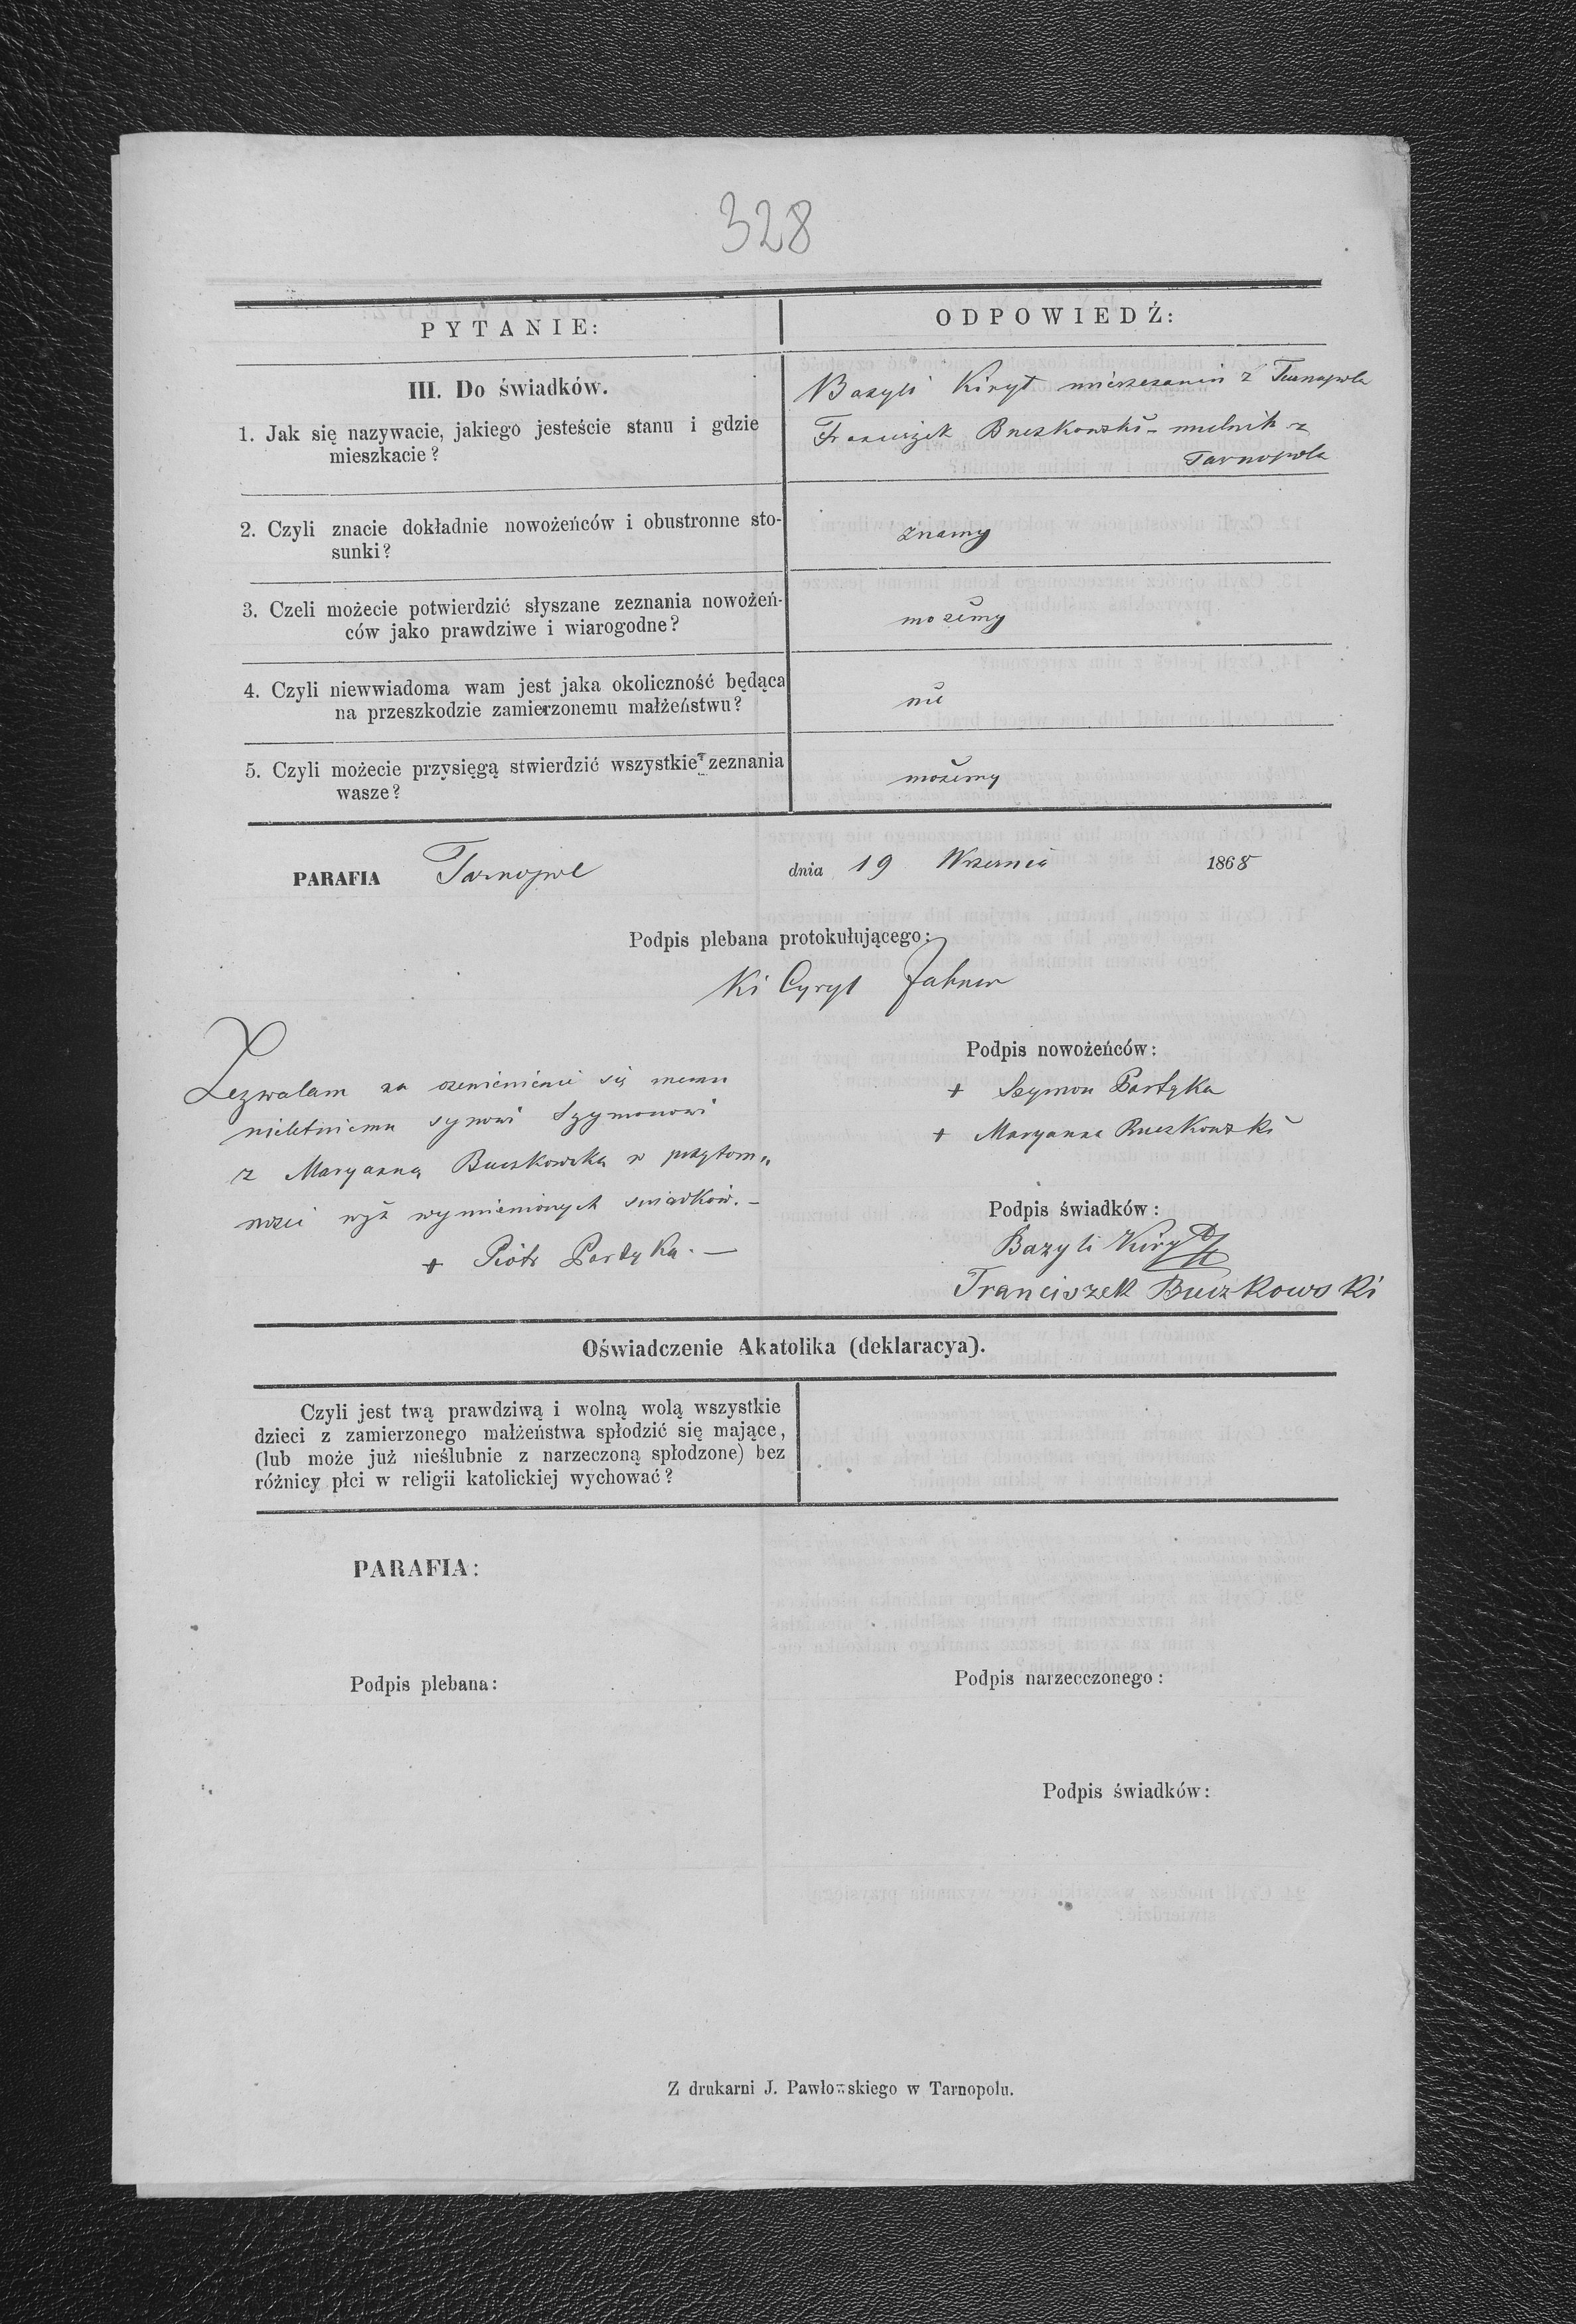 328
PYTANIE:
ODPOWIEDŹ:
III. Do świadków.
1. Jak się nazywacie, jakiego jesteście stanu i gdzie
mieszkacie?
Bazyli Kiryt mieszczanin z Tarnopola
Franciszek Buczkowski - mielnik z
Tarnopola
2. Czyli znacie dokładnie nowożeńców i obustronne sto-
sunki?
znamy
3. Czeli możecie potwierdzić słyszane zeznania nowożeń-
ców jako prawdziwe i wiarogodne?
możemy
4. Czyli niewwiadoma wam jest jaka okoliczność będąca
na przeszkodzie zamierzonemu małżeństwu?
nie
5. Czyli możecie przysięgą stwierdzić wszystkie zeznania
wasze?
możemy
PARAFIA Tarnopol dnia 19 Września 1868
Podpis plebana protokułującego:
Cyryl
Podpis nowożeńców:
+ Szymon Partyka
+ Maryanna Buczkowski
Zezwalam na ożenienie się memu
nieletniemu synowi Szymonowi
z Maryanną Buczkowską w przytom„
ności wyż wymienionych świadków. -
+ Piotr Partyka. —
Podpis świadków:
Bazyli Kiryt
Franciszek Buczkowski
Oświadczenie Akatolika (deklaracya).
Czyli jest twą prawdziwą i wolną wolą wszystkie
dzieci z zamierzonego małżeństwa spłodzić się mające,
(lub może już nieślubnie z narzeczoną spłodzone) bez
różnicy płci w religii katolickiej wychować?
PARAFIA:
Podpis plebana:
Podpis narzecczonego:
Podpis świadków:
Z drukarni J. Pawłowskiego w Tarnopolu.